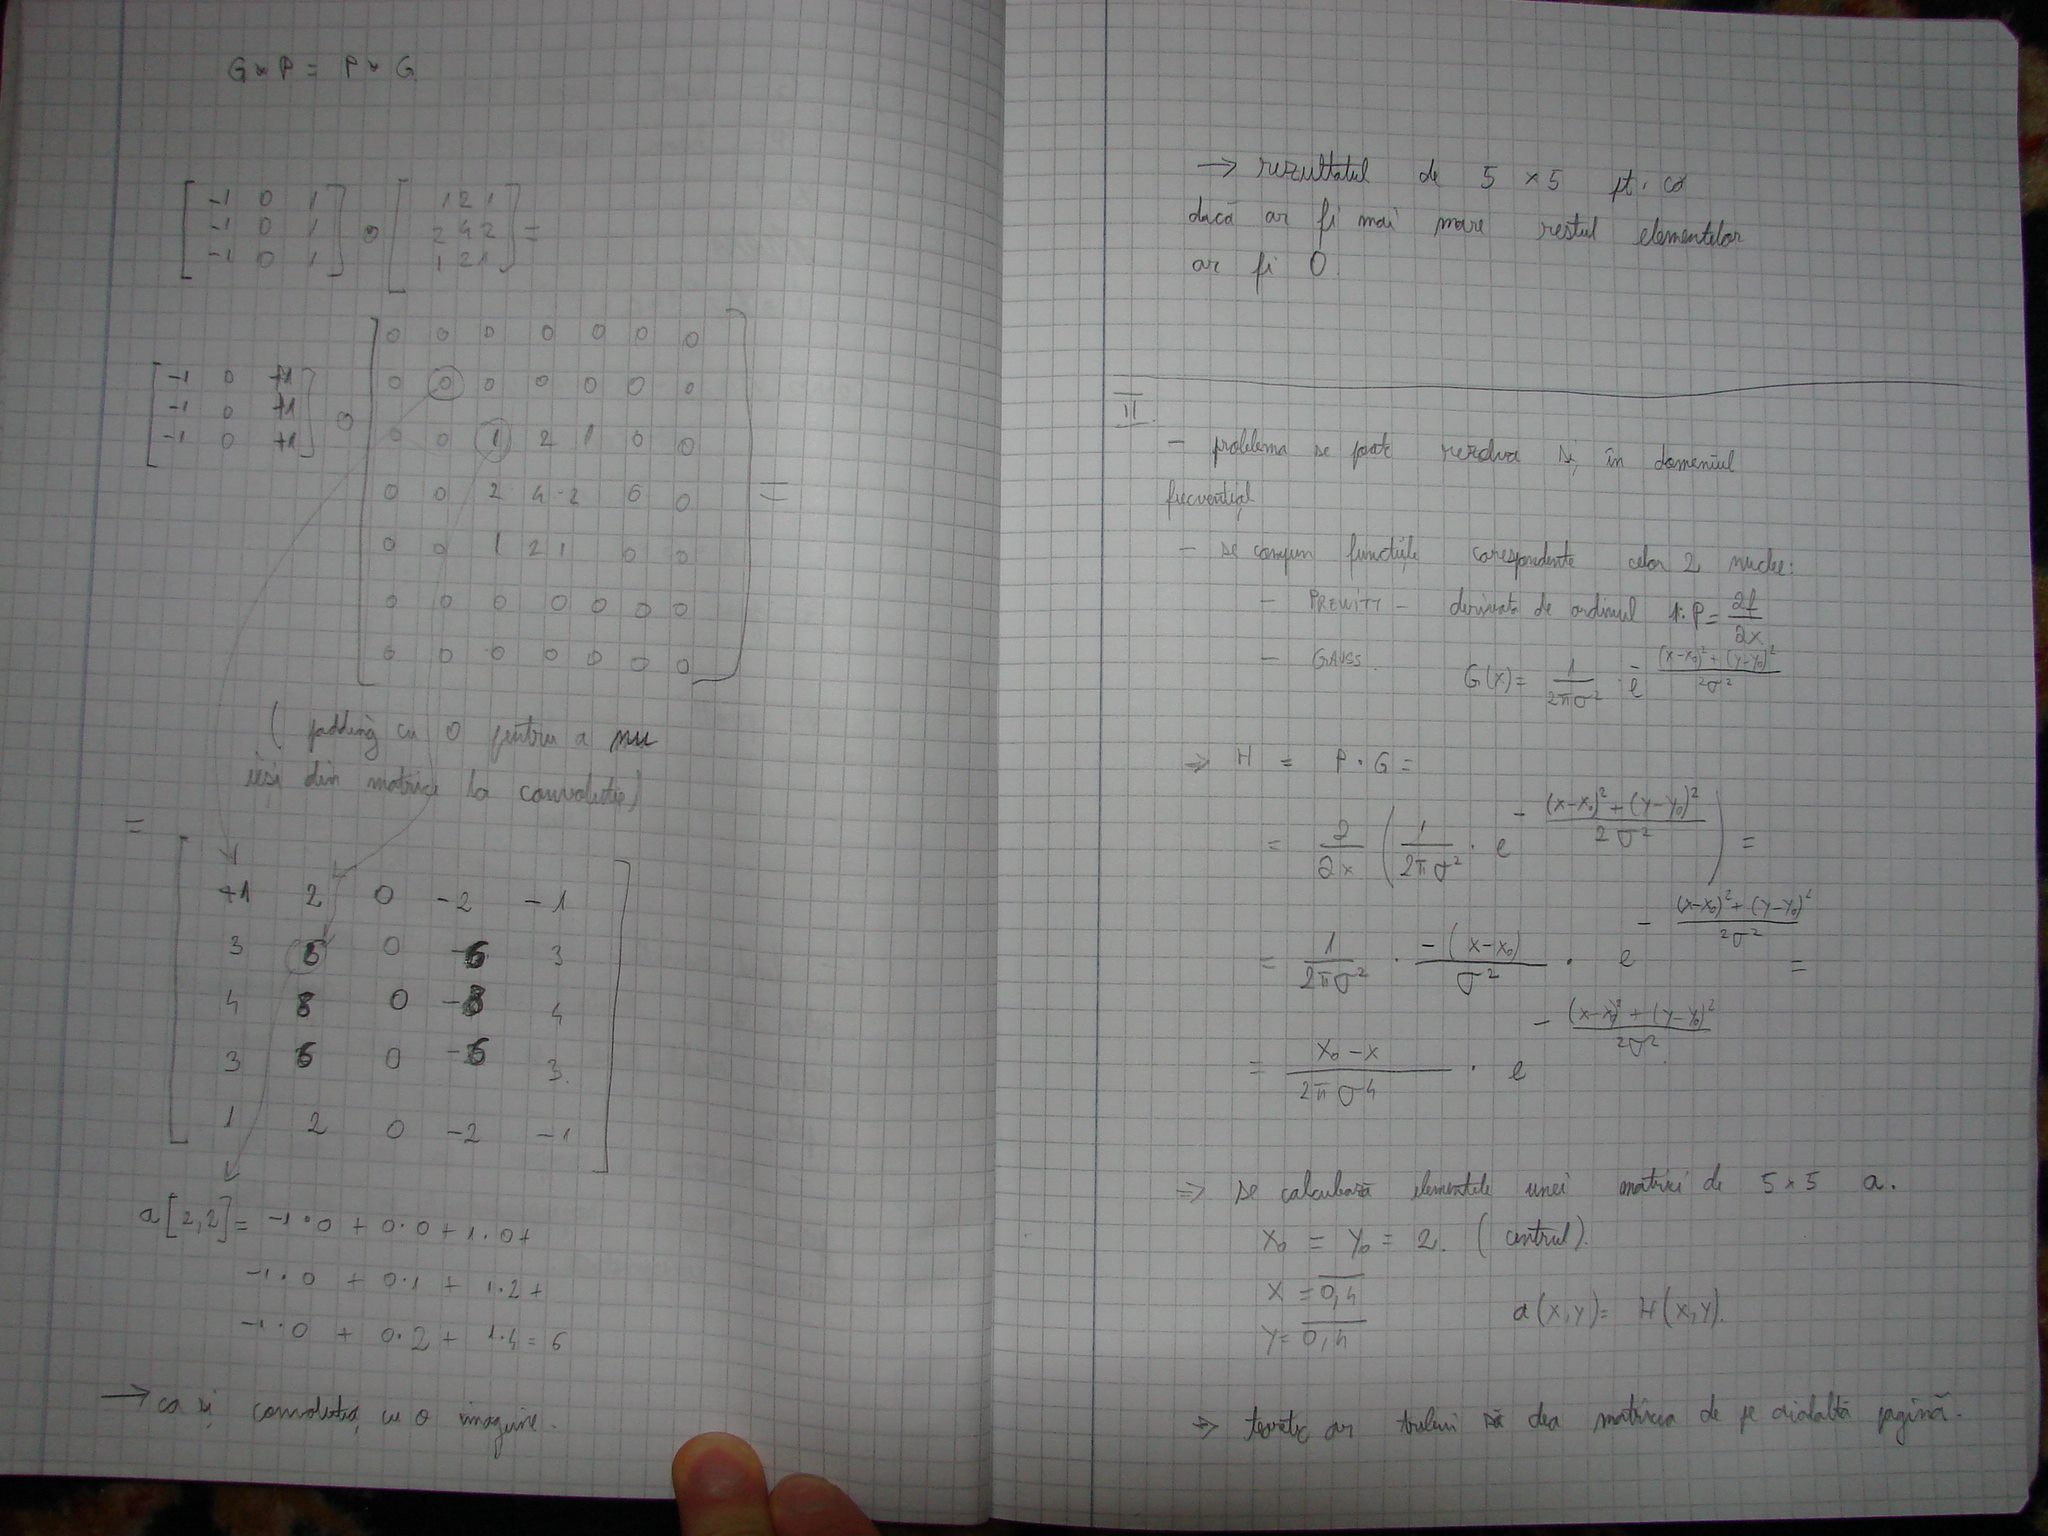 G * P = P * G
[ -1 0 1 ] [ 1 2 1 ]
[ -1 0 1 ] o [ 2 4 2 ] =
[ -1 0 1 ] [ 1 2 1 ]
0 0 0 0 0 0 0
-1 0 +1 0 0 0 0 0 0 0
-1 0 +1 o 0 0 1 2 1 0 0
-1 0 +1 0 0 2 4 2 0 0 =
0 0 1 2 1 0 0
0 0 0 0 0 0 0
0 0 0 0 0 0 0
( padding cu 0 pentru a nu
ieși din matrice la convoluție)
=
+1 2 0 -2 -1
3 6 0 -6 3
4 8 0 -8 4
3 6 0 -6 3
1 2 0 -2 -1
a[2,2] = -1·0 + 0·0 + 1·0+
-1·0 + 0·1 + 1·2+
-1·0 + 0·2 + 1·4 = 6
→ ca și convoluția cu o imagine.
→ rezultatul de 5 × 5 pt. că
dacă ar fi mai mare restul elementelor
ar fi 0
II.
- problema se poate rezolva și în domeniul
frecvențial
- se compun funcțiile corespondente celor 2 nuclee:
- PREWITT - derivata de ordinul 1: P = ∂f/∂x
- GAUSS. G(x) = 1/(2πσ²) · e^-((x-x₀)²+(y-y₀)²)/(2σ²)
⇒ H = P · G =
= ∂/∂x ( 1/(2πσ²) · e^-((x-x₀)²+(y-y₀)²)/(2σ²) ) =
= 1/(2πσ²) · -(x-x₀)/σ² · e^-((x-x₀)²+(y-y₀)²)/(2σ²) =
= (x₀-x)/(2πσ⁴) · e^-((x-x₀)²+(y-y₀)²)/(2σ²)
⇒ se calculează elementele unei matrici de 5×5 a.
x₀ = y₀ = 2. (centrul).
x = 0,4
y = 0,4 a(x,y) = H(x,y).
⇒ teoretic ar trebui să dea matricea de pe cealaltă pagină.